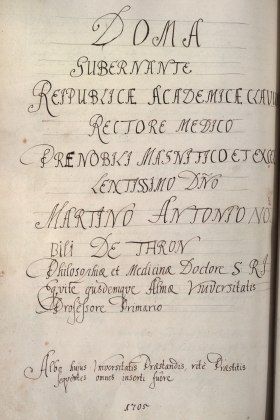 DOMA
GUBERNANTE
REIPUBLICÆ ACADEMICÆ CLAVUM
RECTORE MEDICO
PRÆNOBILI MAGNIFICO ET EXCEL
LENTISSIMO DNO
MARTINO ANTONIO NO
bili DE THRON
Philosophiæ et Medicinæ Doctore S R I
Eqvite ejusdemque Almæ Universitatis
Professore Primario
Albo hujus Universitatis Præstandis, ritè Præstitis
seqventes omnes inserti fuêre
1705